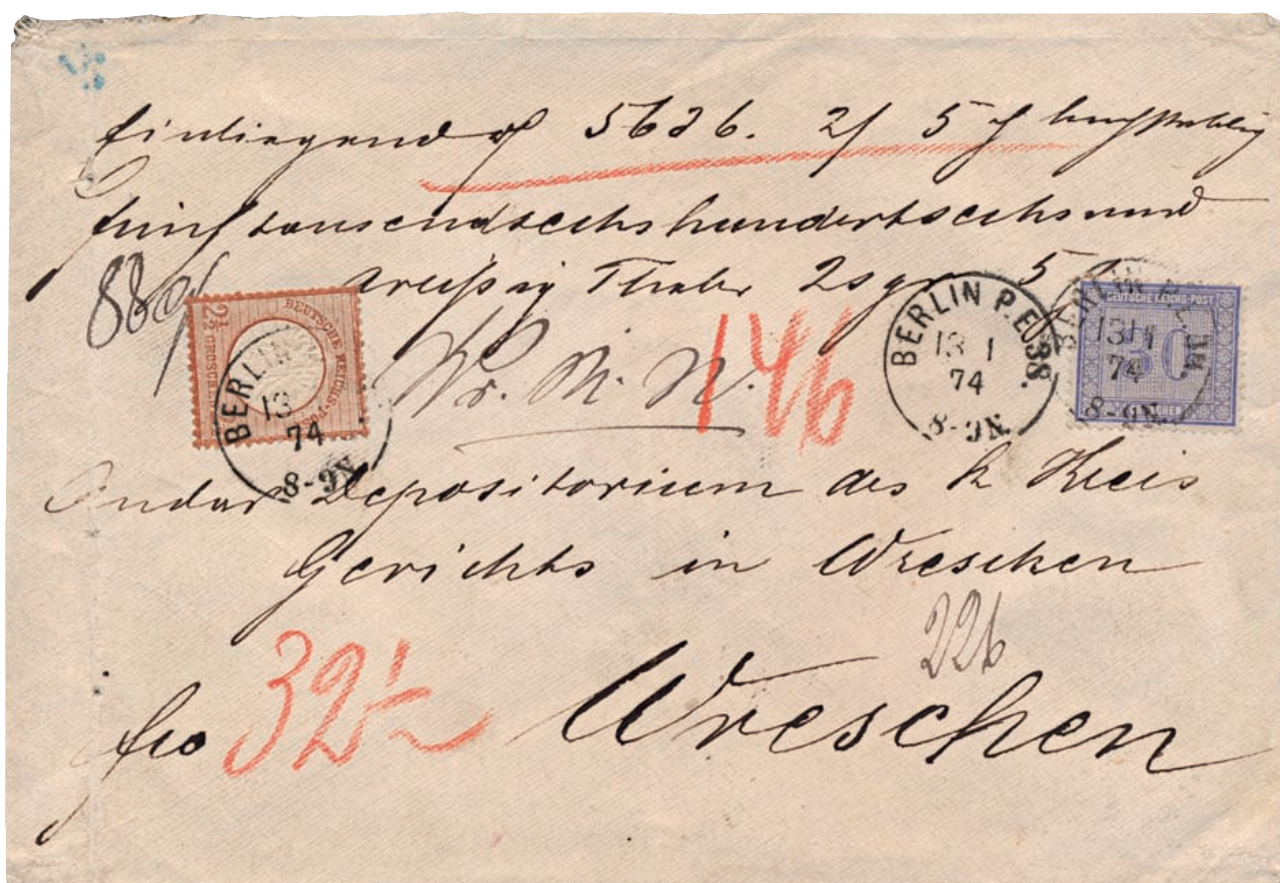 Einliegend 5636. 2/ 5
fünftausendsechshundertsechsund
dreißig Thaler 2 sgr 5
88
2½ GROSCHEN DEUTSCHE REICHS-POST
BERLIN
13
74
8-9N.
W. M. N.
146
BERLIN P.E. 38.
13 1
74
8-9N.
DEUTSCHE REICHS-POST
30
BERLIN
13 1
74
8-9N.
An das Depositorium des k Kreis
Gerichts in Wreschen
226
fro 32½ Wreschen